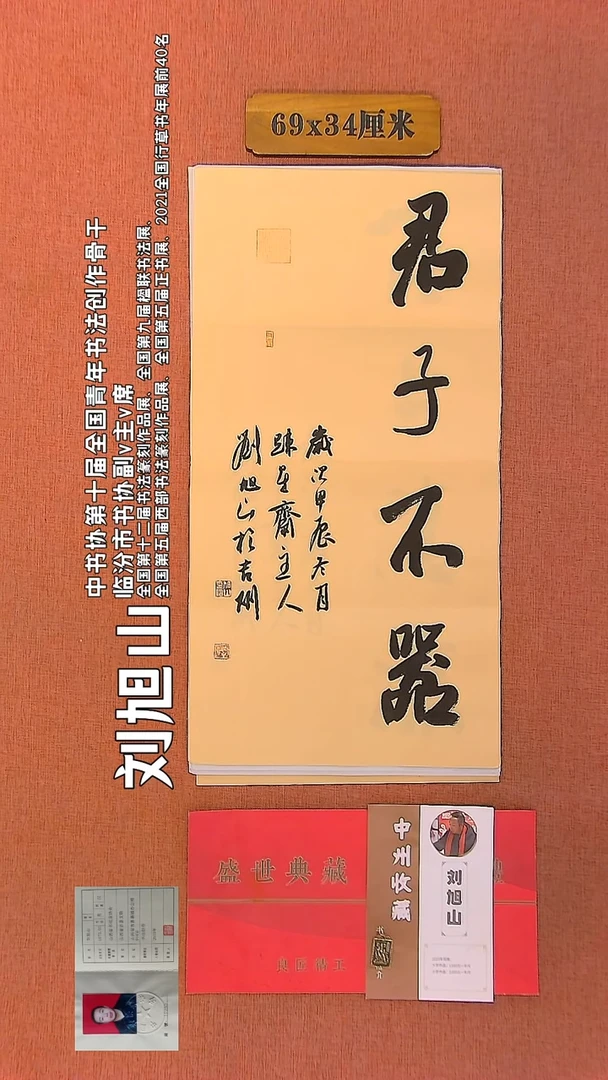 69x34厘米
君子不器
歲次甲辰冬月
齋主人
劉旭山於吉州
刘旭山
中书协第十届全国青年书法创作骨干
临汾市书协副v主v席
全国第十二届书法篆刻作品展、全国第九届楹联书法展、
全国第五届西部书法篆刻作品展、全国第五届正书展、2021全国行草书年展前40名
盛世典藏
良匠精工
中州收藏
刘旭山